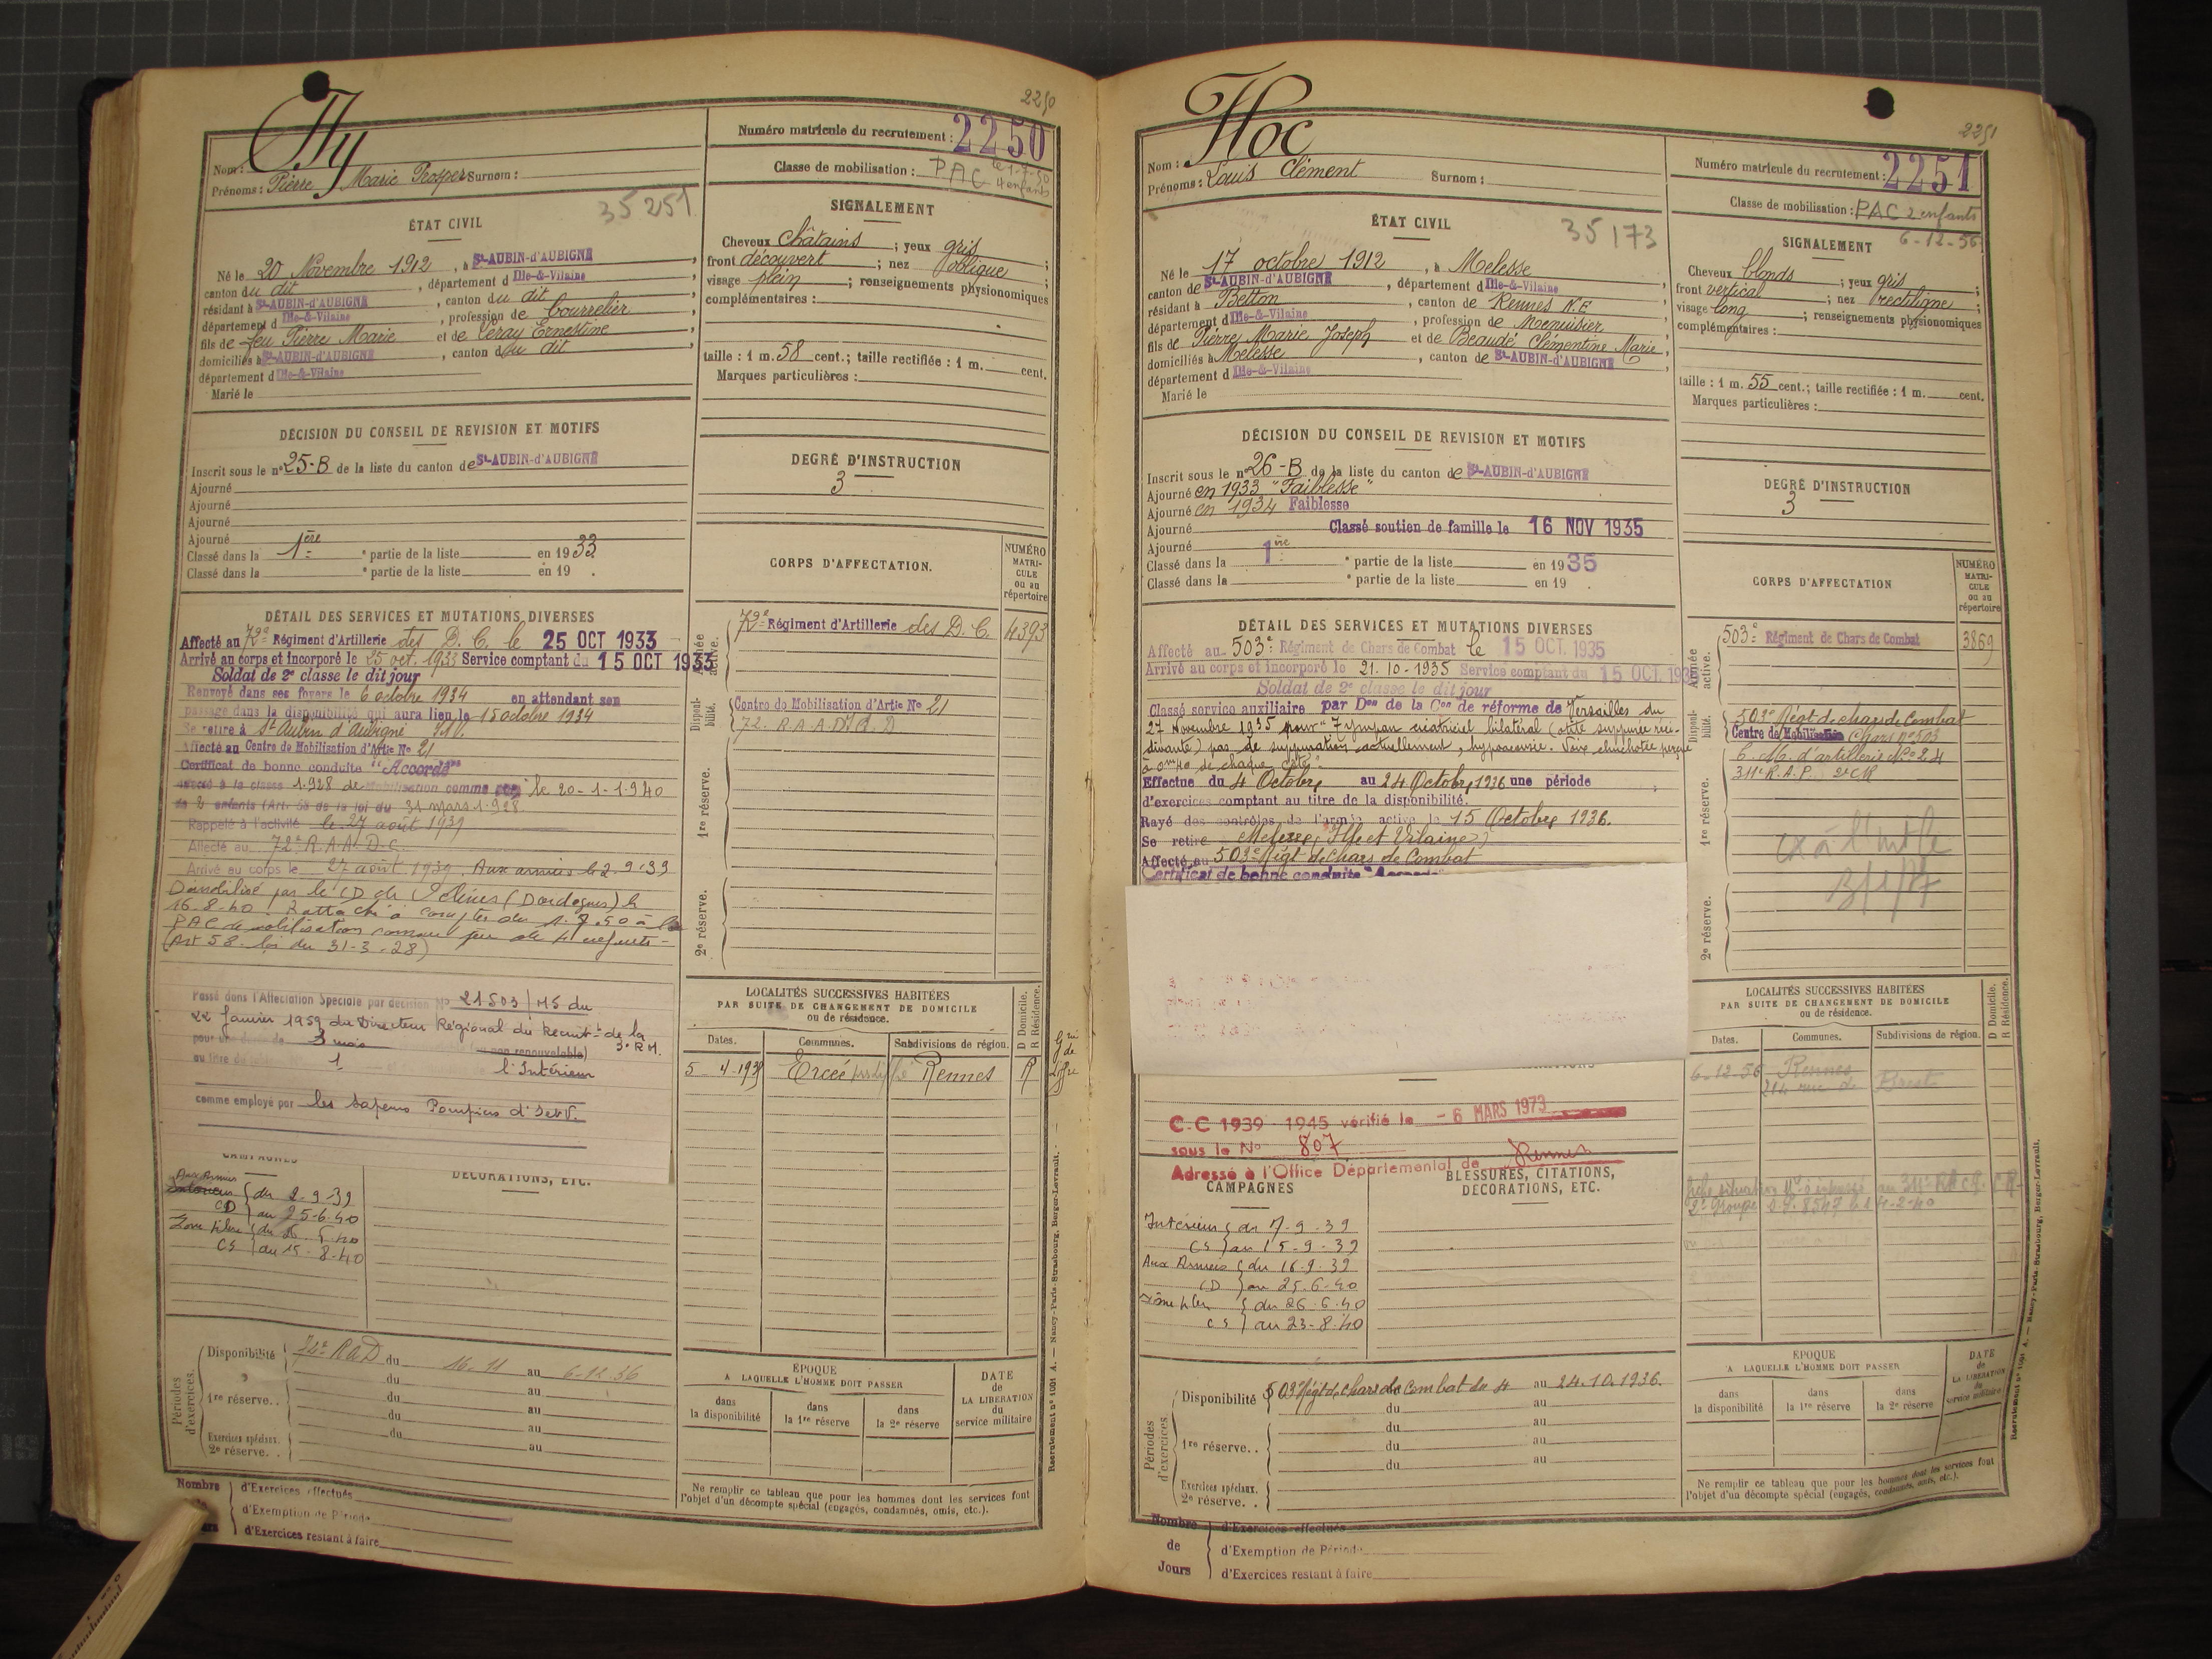 2250
Hy
Nom :
Prénoms : Pierre Marie Prosper Surnom :
Numéro matricule du recrutement : 2250
Classe de mobilisation : PAC le 1-7-50
4 enfants
35251
ÉTAT CIVIL
Né le 20 Novembre 1912, à St-AUBIN-d'AUBIGNÉ,
canton du dit, département d Ille-&-Vilaine
résidant à St-AUBIN-d'AUBIGNÉ, canton du dit,
département d Ille-&-Vilaine, profession de bourrelier
fils de feu Pierre Marie et de Leray Ernestine,
domiciliés à St-AUBIN-d'AUBIGNÉ, canton du dit
département d Ille-&-Vilaine
Marié le
SIGNALEMENT
Cheveux châtains ; yeux gris ;
front découvert ; nez oblique ;
visage plein ; renseignements physionomiques
complémentaires :
taille : 1 m. 58 cent.; taille rectifiée : 1 m. cent.
Marques particulières :
DÉCISION DU CONSEIL DE REVISION ET MOTIFS
Inscrit sous le n° 25-B de la liste du canton de St-AUBIN-d'AUBIGNÉ
Ajourné
Ajourné
Ajourné
Ajourné
Classé dans la 1ère partie de la liste en 1933
Classé dans la partie de la liste en 19 .
DEGRÉ D'INSTRUCTION
3
DÉTAIL DES SERVICES ET MUTATIONS DIVERSES
Affecté au 72e Régiment d'Artillerie des D. C. le 25 OCT 1933
Arrivé au corps et incorporé le 25 oct. 1933 Service comptant du 15 OCT 1933
Soldat de 2e classe le dit jour
Renvoyé dans ses foyers le 6 octobre 1934 en attendant son
passage dans la disponibilité qui aura lieu le 15 octobre 1934
Se retire à St Aubin d'Aubigné I.&V.
Affecté au Centre de Mobilisation d'Artie No 21
Certificat de bonne conduite "Accordé"
à la classe 1928 de mobilisation comme père le 20-1-1940
de 2 enfants (Art. 58 de la loi du 31 mars 1928
Rappelé à l'activité le 27 août 1939
Affecté au 72e R.A.A.D.C.
Arrivé au corps le 27 août 1939. Aux armées le 2.9.39
Démobilisé par le CD de Vélines (Dordogne) le
16.8.40. Rattaché à compter du 1.7.50 à la
PAC de mobilisation comme père de 4 enfants
(Art 58 loi du 31-3-28)
Passé dans l'Affectation Spéciale par décision No 21503/MS du
22 Janvier 1959 du Directeur Régional du Recrutt de la
3e R.M.
pour une durée de 3 mois (non renouvelable)
au titre du 1 l'Intérieur
comme employé par les Sapeurs Pompiers d'I&V.
CORPS D'AFFECTATION.
NUMÉRO MATRICULE ou au répertoire
Armée active.
72e Régiment d'Artillerie des D. C. 4393
Disponibilité.
Centre de Mobilisation d'Artie No 21
72. R.A.A.D.C.
1re réserve.
2e réserve.
LOCALITÉS SUCCESSIVES HABITÉES
PAR SUITE DE CHANGEMENT DE DOMICILE
ou de résidence.
Dates. Communes. Subdivisions de région. D Domicile. R Résidence.
5-4-193 Ercée Rennes R
CAMPAGNES
DÉCORATIONS, ETC.
Aux Armées du 2-9-39
CD au 25-6-40
Zone libre du 26.6.40
CS au 15-8-40
Périodes d'exercices.
Disponibilité du 16.11 au 6-12-36
du au
1re réserve.. du au
du au
Exercices spéciaux. du au
2e réserve. . au
Nombre
d'Exercices effectués
d'Exemption de Période
d'Exercices restant à faire
ÉPOQUE
A LAQUELLE L'HOMME DOIT PASSER
dans la disponibilité
dans la 1re réserve
dans la 2e réserve
DATE de LA LIBERATION du service militaire
Ne remplir ce tableau que pour les hommes dont les services font
l'objet d'un décompte spécial (engagés, condamnés, omis, etc.).
Recrutement n° 1001 A. — Nancy-Paris-Strasbourg, Berger-Levrault.
2251
Hoc
Nom :
Prénoms : Louis Clément Surnom :
Numéro matricule du recrutement : 2251
Classe de mobilisation : PAC 2 enfants
6-12-56
35173
ÉTAT CIVIL
Né le 17 octobre 1912, à Melesse
canton de St-AUBIN-d'AUBIGNÉ, département d Ille-&-Vilaine
résidant à Betton, canton de Rennes N.E
département d Ille-&-Vilaine, profession de Menuisier
fils de Pierre Marie Joseph et de Beaudé Clémentine Marie,
domiciliés à Melesse, canton de St-AUBIN-d'AUBIGNÉ
département d Ille-&-Vilaine
Marié le
SIGNALEMENT
Cheveux blonds ; yeux gris ;
front vertical ; nez rectiligne ;
visage long ; renseignements physionomiques
complémentaires :
taille : 1 m. 55 cent.; taille rectifiée : 1 m. cent.
Marques particulières :
DÉCISION DU CONSEIL DE REVISION ET MOTIFS
Inscrit sous le n° 26-B de la liste du canton de St-AUBIN-d'AUBIGNÉ
Ajourné en 1933 "Faiblesse"
Ajourné en 1934 Faiblesse
Ajourné Classé soutien de famille le 16 NOV 1935
Ajourné
Classé dans la 1re partie de la liste en 1935
Classé dans la partie de la liste en 19 .
DEGRÉ D'INSTRUCTION
3
DÉTAIL DES SERVICES ET MUTATIONS DIVERSES
Affecté au 503e Régiment de Chars de Combat le 15 OCT. 1935
Arrivé au corps et incorporé le 21.10-1935 Service comptant du 15 OCT. 1935
Soldat de 2e classe le dit jour
Classé service auxiliaire par Don de la Con de réforme de Versailles du
27 Novembre 1935 pour "Tympan cicatriciel bilatéral (otite suppurée réci-
divante) pas de suppuration actuellement, hypoacousie. Voix chuchotée perçue
à 0m40 de chaque côté"
Effectue du 4 Octobre au 24 Octobre 1936 une période
d'exercices comptant au titre de la disponibilité.
Rayé des contrôles de l'armée active le 15 Octobre 1936.
Se retire Melesse, (Ille et Vilaine)
Affecté au 503e Régt de chars de Combat
Certificat de bonne conduite "Accordé"
CORPS D'AFFECTATION
NUMÉRO MATRICULE ou au répertoire
Armée active.
503e Régiment de Chars de Combat 3869
Disponibilité.
503e Régt de chars de Combat
Centre de Mobilisation Chars n° 503
C. M. d'artillerie No 24
311e R.A.P.
1re réserve.
2e réserve.
C.C 1939 - 1945 vérifié le - 6 MARS 1973
sous le No 807
Adressé à l'Office Départemental de Rennes
CAMPAGNES
BLESSURES, CITATIONS,
DÉCORATIONS, ETC.
Intérieur du 7-9-39
CS au 15-9-39
Aux Armées du 16-9-39
CD au 25.6.40
Zone libre du 26.6.40
CS au 23-8-40
LOCALITÉS SUCCESSIVES HABITÉES
PAR SUITE DE CHANGEMENT DE DOMICILE
ou de résidence.
Dates. Communes. Subdivisions de région. D Domicile. R Résidence.
6-12-56 Rennes
214 rue de Brest
Périodes d'exercices.
Disponibilité 503e Régt de chars de Combat du 4 au 24.10.1936.
du au
du au
1re réserve.. du au
du au
Exercices spéciaux.
2e réserve. .
Nombre de Jours
d'Exercices effectués
d'Exemption de Période
d'Exercices restant à faire
ÉPOQUE
A LAQUELLE L'HOMME DOIT PASSER
dans la disponibilité
dans la 1re réserve
dans la 2e réserve
DATE de LA LIBERATION du service militaire
Ne remplir ce tableau que pour les hommes dont les services font
l'objet d'un décompte spécial (engagés, condamnés, omis, etc.).
Recrutement n° 1001 A. — Nancy-Paris-Strasbourg, Berger-Levrault.